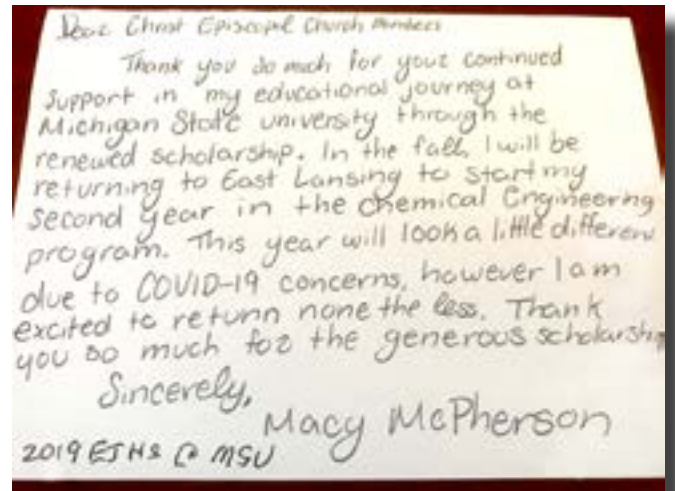 Dear Christ Episcopal Church Members
Thank you so much for your continued
support in my educational journey at
Michigan State university through the
renewed scholarship. In the fall, I will be
returning to East Lansing to start my
second year in the chemical Engineering
program. This year will look a little different
due to COVID-19 concerns, however I am
excited to return none the less. Thank
you so much for the generous scholarship
Sincerely,
Macy McPherson
2019 EJHS @ MSU